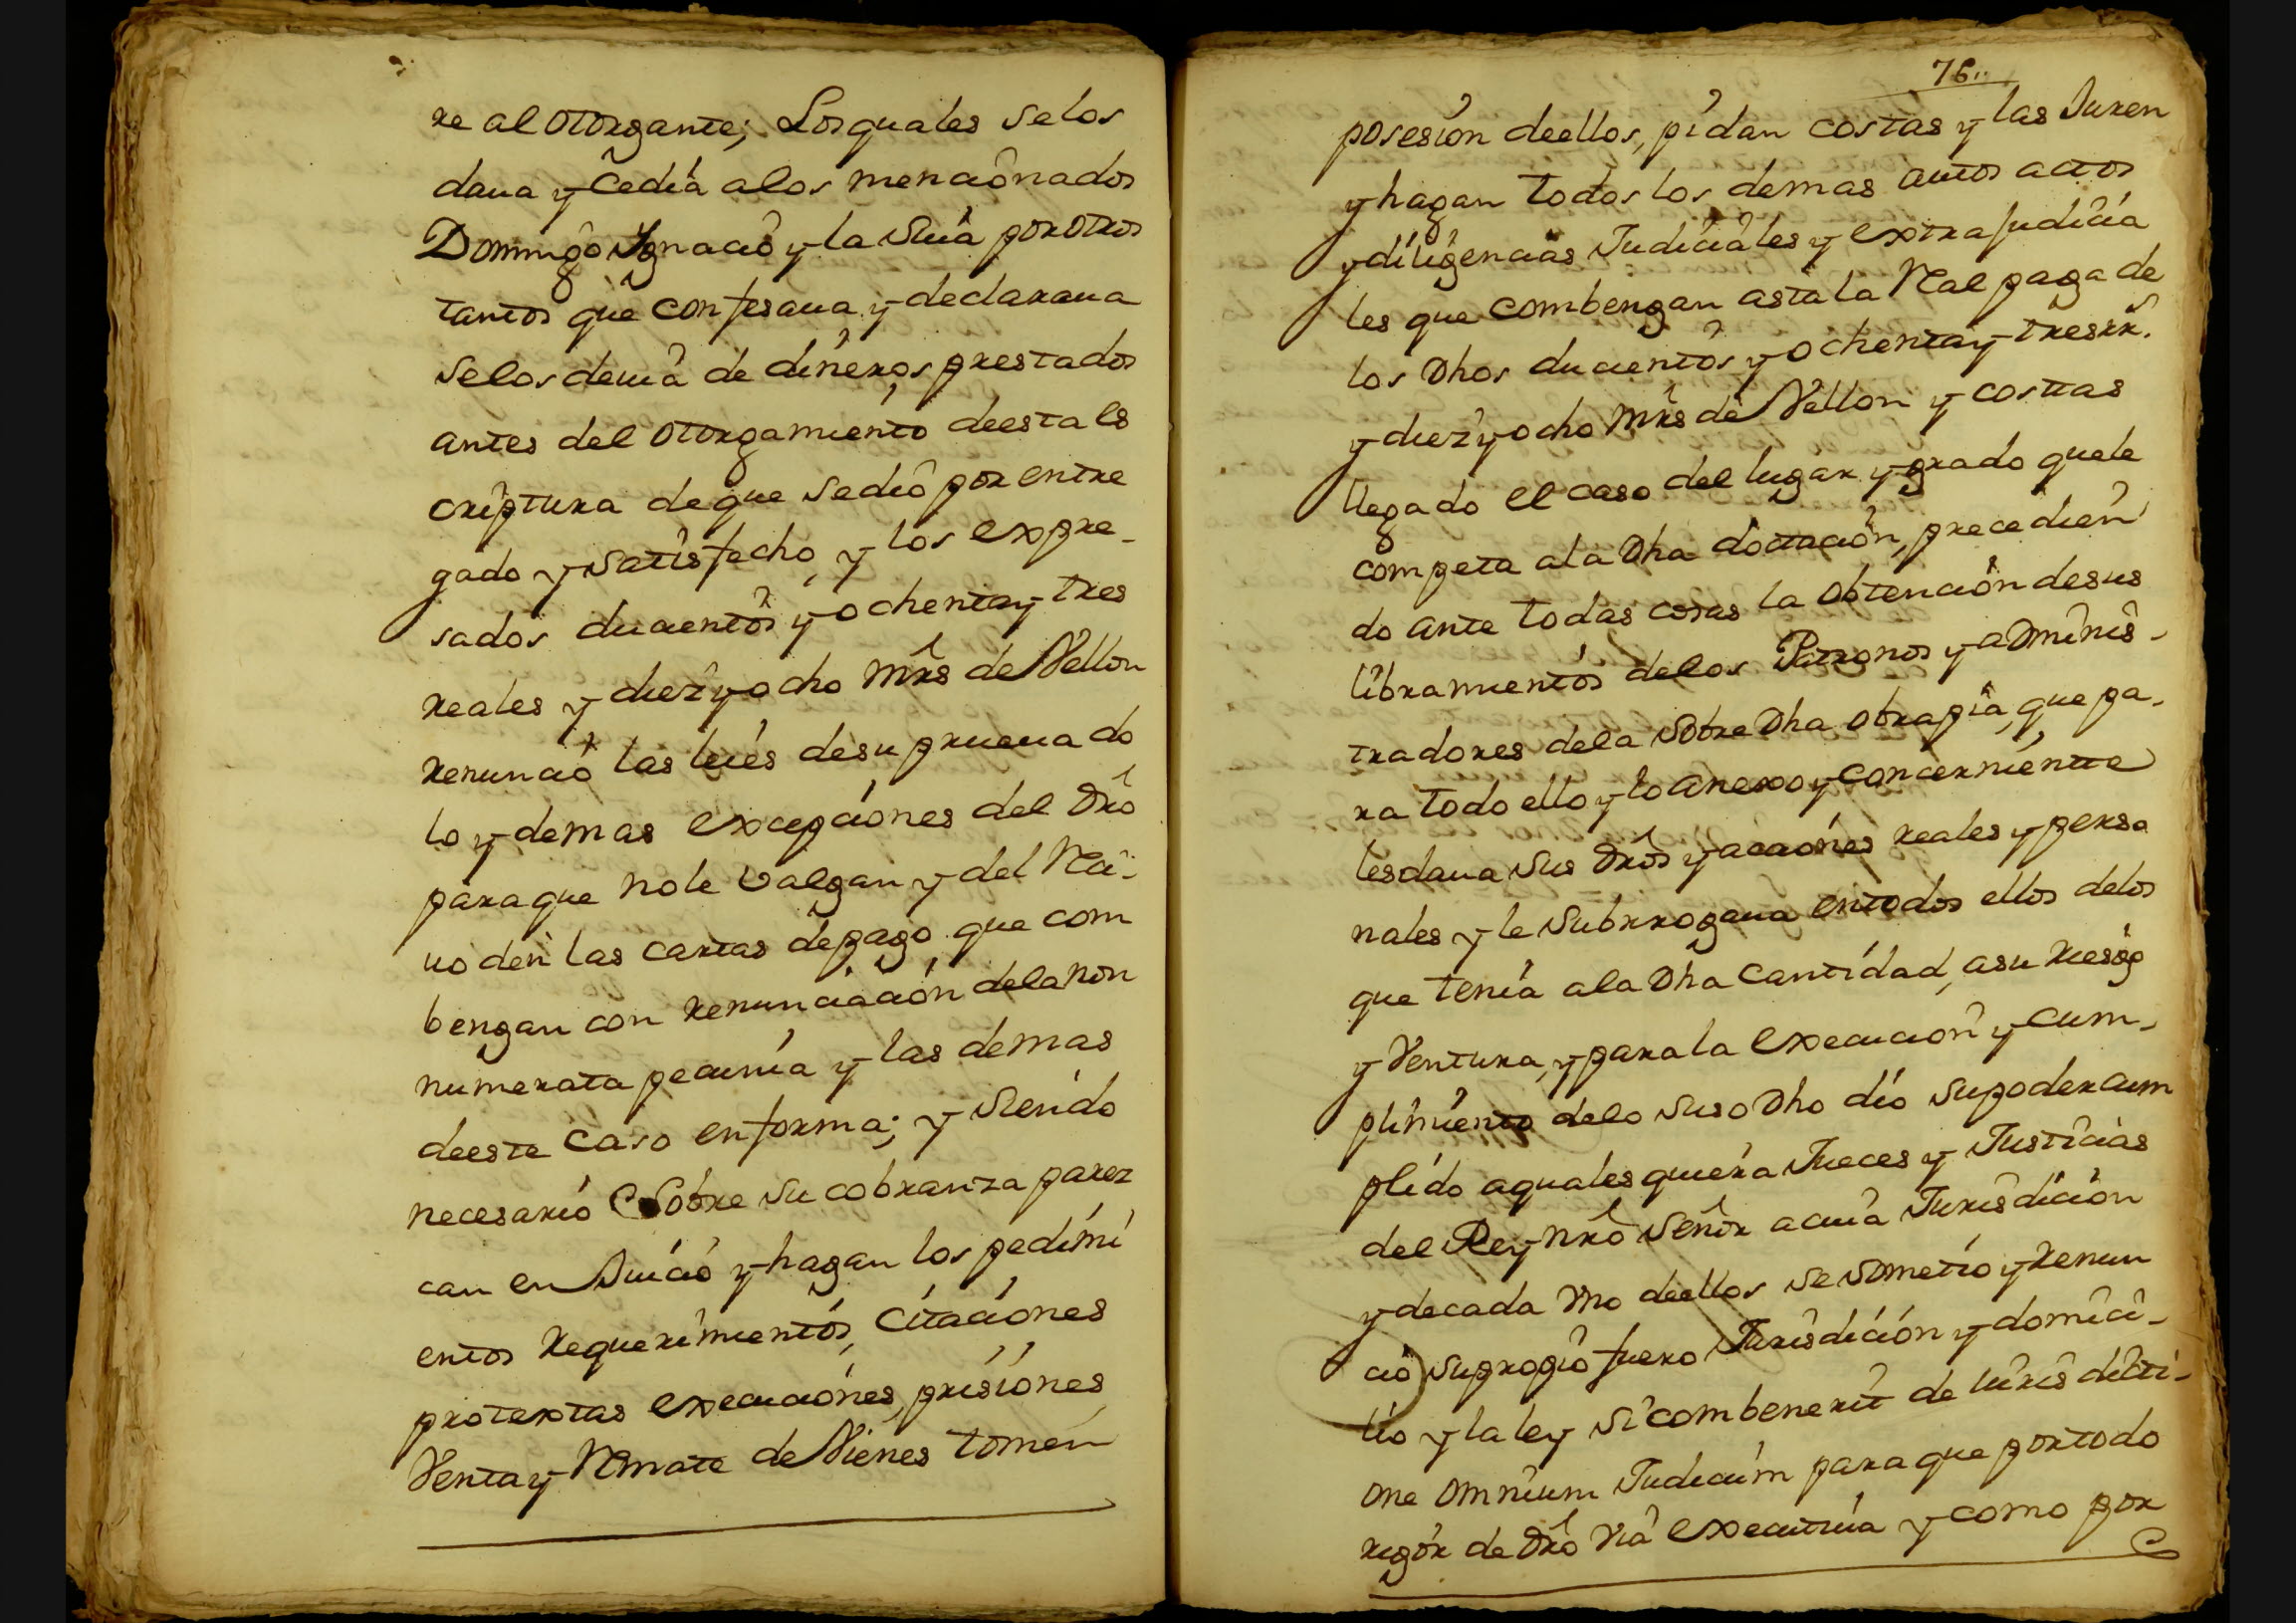 re al otorgante; Los quales se los
daua y Cedia a los mencionados
Domingo Ygnacio y la Suia por otros
tantos que confesaua y declaraua
se los deuia de dineros prestados
antes del otorgamiento deesta Es
criptura de que se dio por entre
gado y satisfecho, y los expre-
sados ducientos y ochenta y tres
reales y diez y ocho mrs de Vellon
renunció las leies de su prueua do
lo y demas excepciones del dro
para que no le valgan y del Reci-
uo den las cartas de pago que com
bengan con renunciación dela non
numerata pecunia y las demas
deeste caso en forma; y siendo
necesario sobre su cobranza parez
can en Juicio y hagan los pedimi
entos requerimientos, citaciones
protextas execuciones, prisiones,
Venta y Remate de Vienes tomen
76..
posesion deellos, pidan costas y las Juren
y hagan todos los demas autos actos
y diligencias Judiciales y extrajudicia
les que combengan asta la Real paga de
los dhos ducientos y ochenta y tres rr.
y diez y ocho mrs de Vellon y costtas
llegado el caso del lugar y grado que le
competa ala dha dottacion, precedien
do ante todas cosas la obtencion desus
libramientos delos Patronos y adminis-
tradores dela sobre dha obrapia, que pa-
ra todo ello y lo anexo y concerniente
les daua sus dros y acciones reales y perso
nales y le subrrogaua en todos ellos delos
que tenia ala dha Cantidad, asu riesgo
y Ventura, y para la execucion y cum-
plimiento delo suso dho dio su poder cum
plido a quales quiera Jueces y Justicias
del Rey nro señor a cuia Jurisdicion
y de cada vno deellos se sometio y renun
cio su propio fuero Jurisdicion y domici-
lio y la ley si combenerit de iuris dicti-
one omnium Judicum para que por todo
rigor de dro via executiua y como por